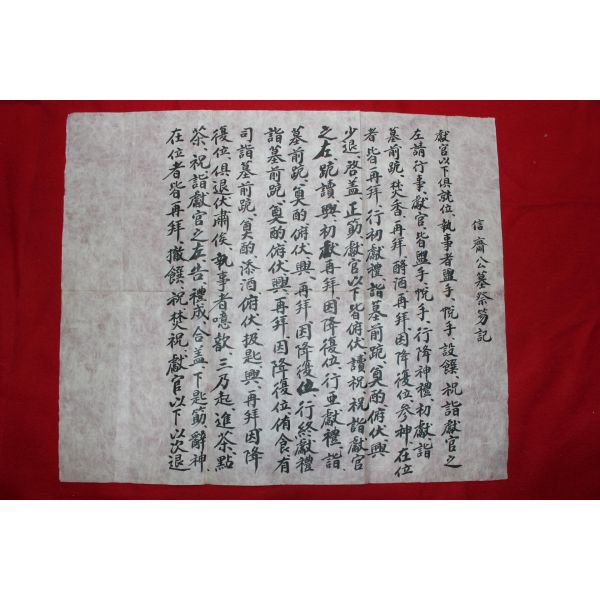 信齋公墓祭笏記
獻官以下俱就位、執事者盥手、帨手、設饌、祝詣獻官之
左請行事、獻官皆盥手、帨手、行降神禮、初獻詣
墓前跪、焚香、再拜、酹酒、再拜、因降復位、參神、在位
者皆再拜、行初獻禮、詣墓前跪、奠酌、俯伏、興、
少退、啓盖、正筯、獻官以下皆俯伏、讀祝、祝詣獻官
之左、跪讀、興、初獻再拜、因降復位、行亜獻禮、詣
墓前跪、奠酌、俯伏、興、再拜、因降復位、行終獻禮
詣墓前跪、奠酌、俯伏、興、再拜、因降復位、侑食、有
司詣墓前跪、奠酌、添酒、俯伏、扱匙、興、再拜、因降
復位、俱退伏肅俟、執事者噫歆、三乃起、進茶、點
茶、祝詣獻官之左告、禮成、合盖、下匙筯、辭神、
在位者皆再拜、撤饌、祝焚祝、獻官以下以次退